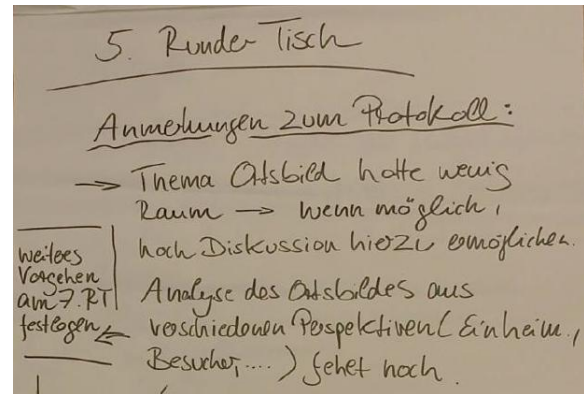 5. Runder Tisch
Anmerkungen zum Protokoll:
→ Thema Ortsbild hatte wenig
Raum → wenn möglich,
noch Diskussion hierzu ermöglichen.
Analyse des Ortsbildes aus
verschiedenen Perspektiven (Einheim.,
Besucher, ....) fehlt noch.
weiteres
Vorgehen
am 7. RT
festlegen ←